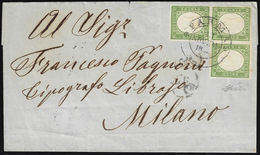 Al Sigr
Francesco Pagnoni
Tipografo Librajo
Milano